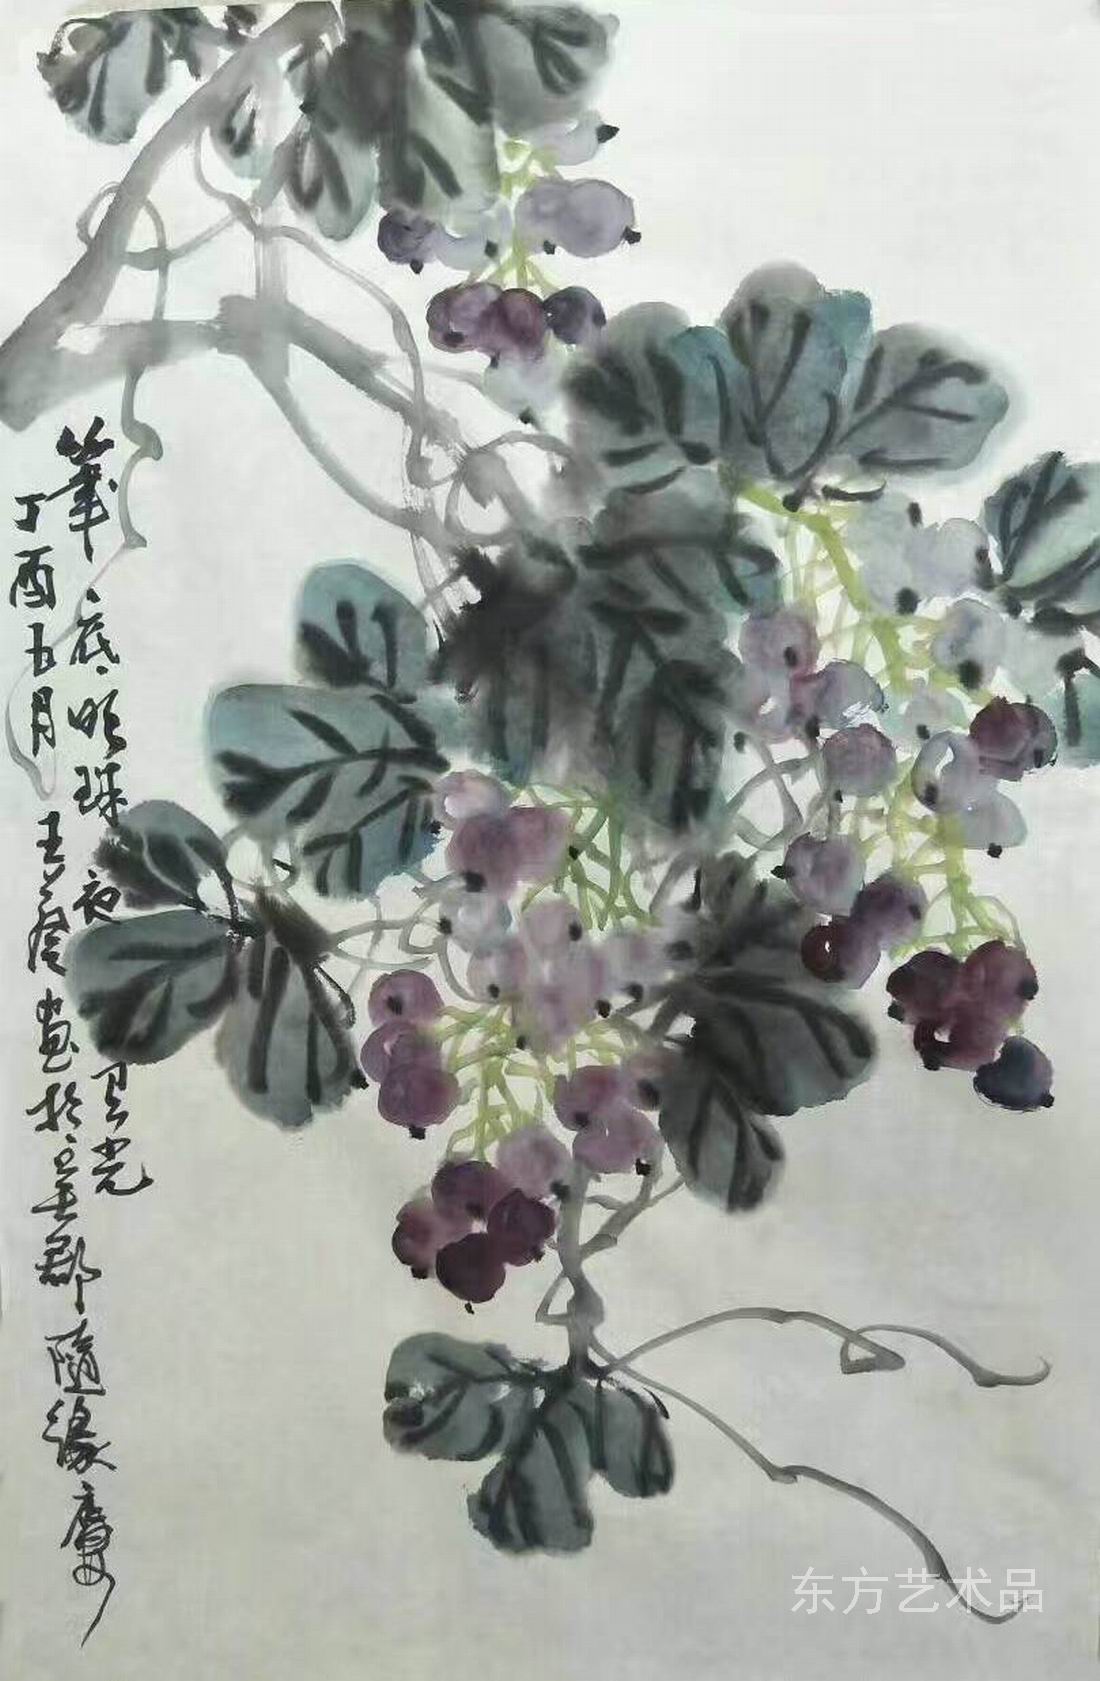 筆底明珠夜有光
丁酉五月 王 畫於 吴郡隨緣
东方艺术品